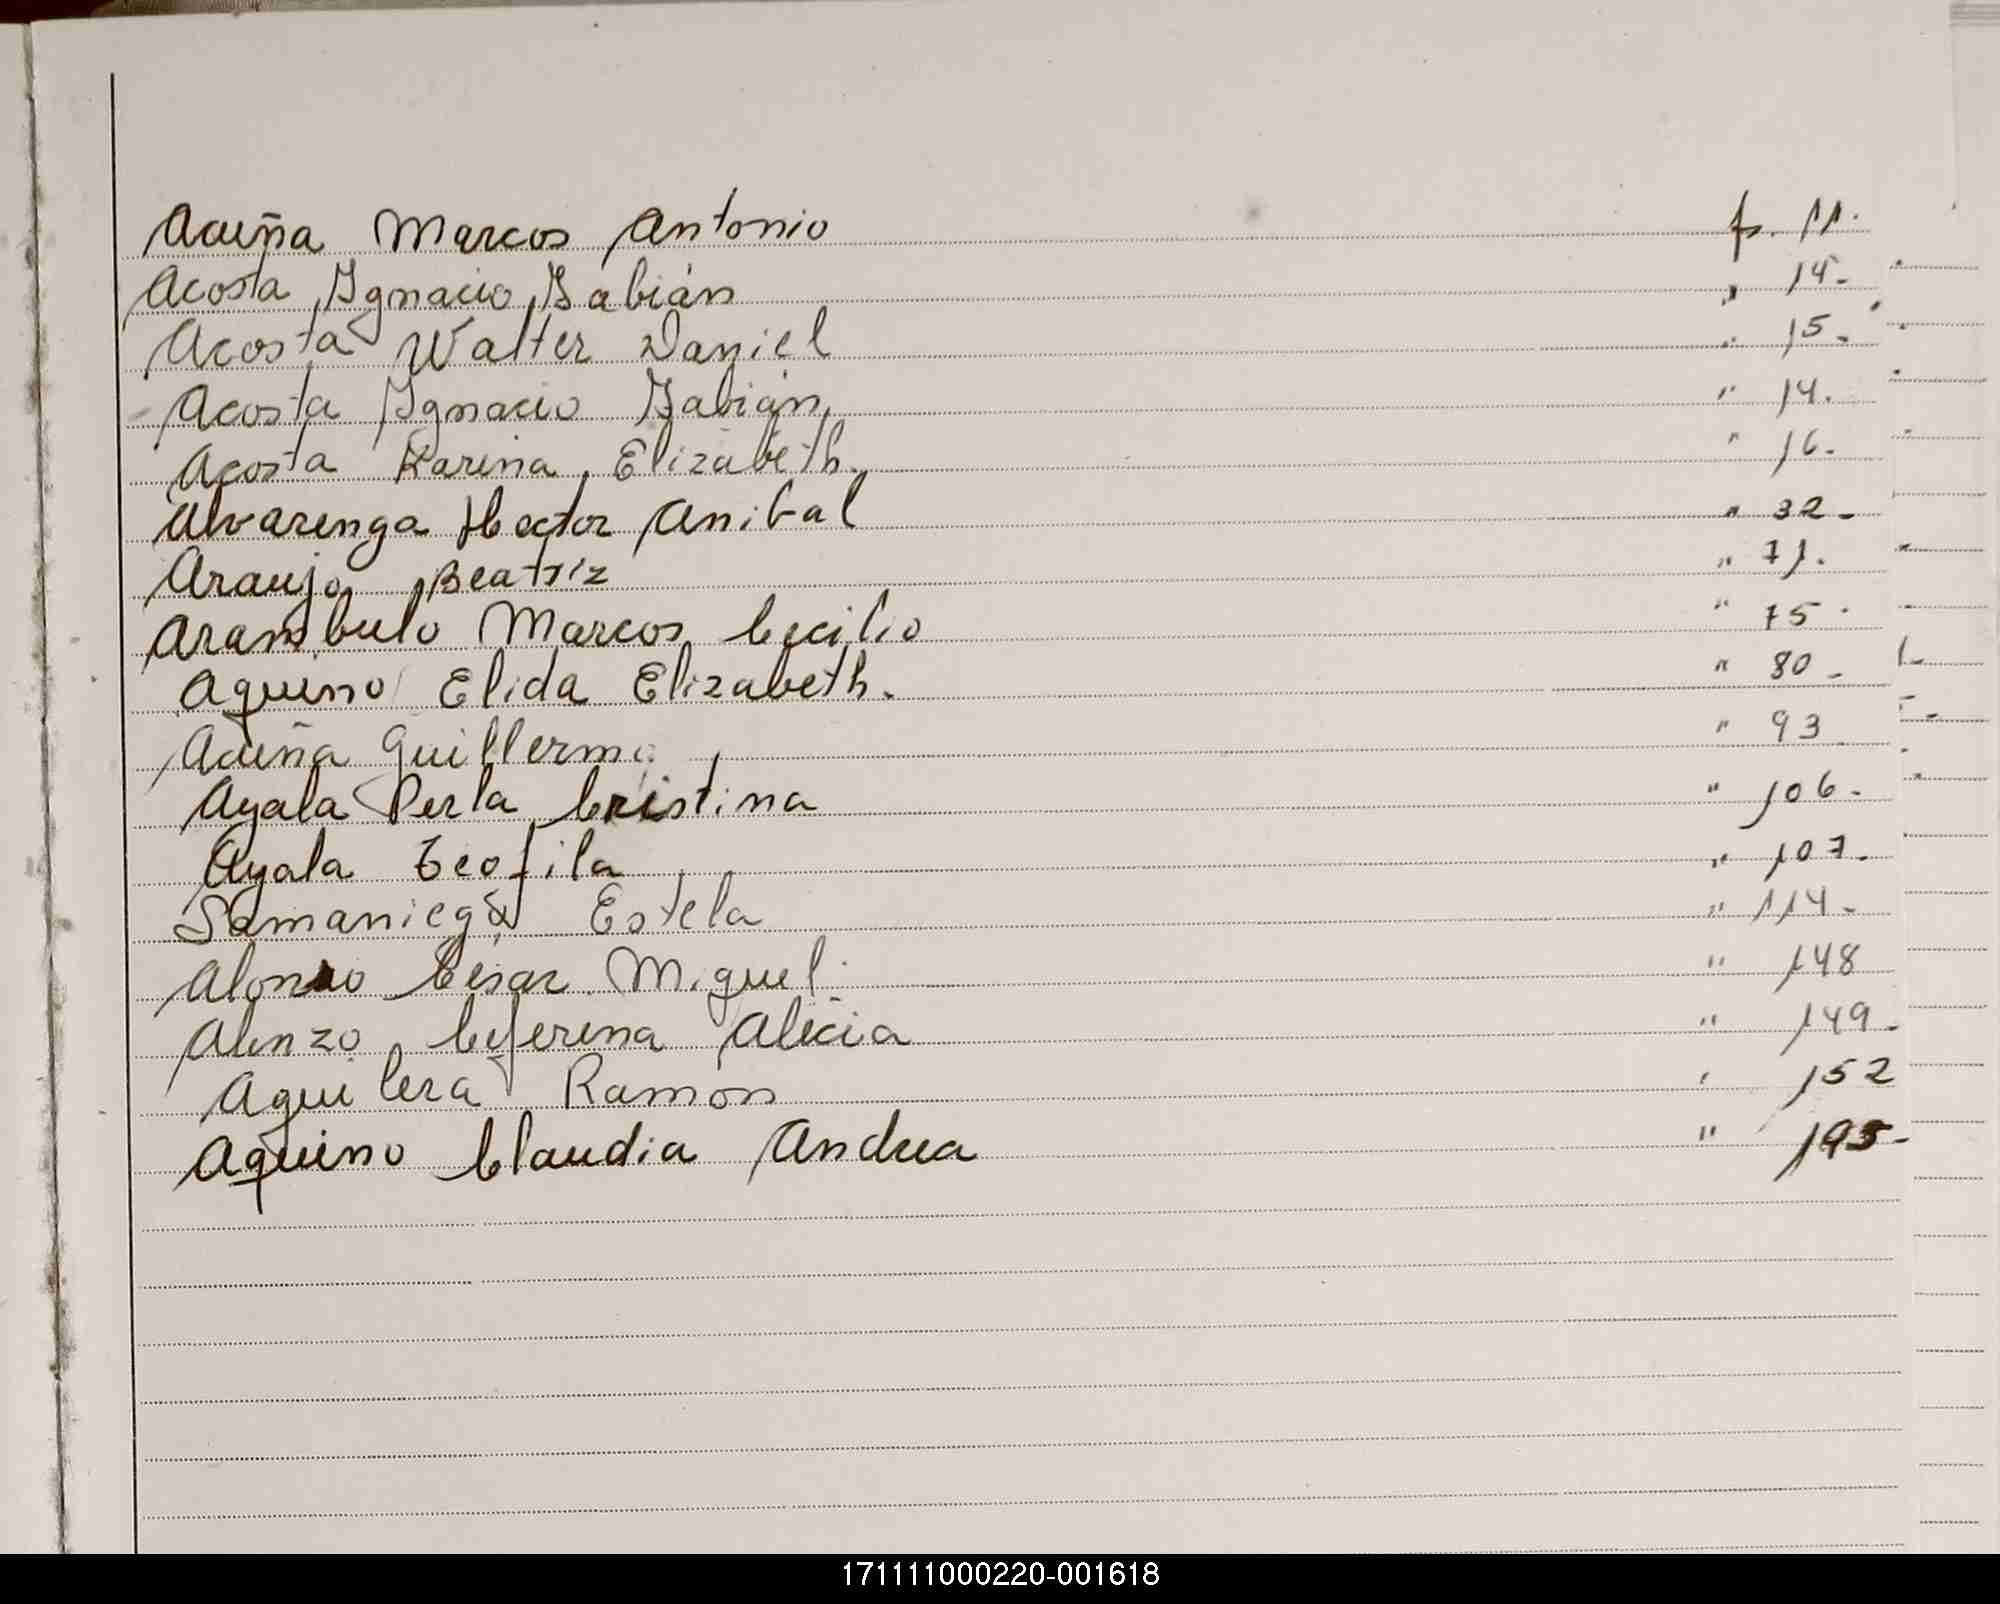 Acuña Marcos Antonio fs. 11.
Acosta Ignacio Fabián " 14-
Acosta Walter Daniel " 15-
Acosta Ignacio Fabián " 14.
Acosta Karina Elizabeth. " 16.
Alvarenga Hector Anibal " 32-
Araujo Beatriz " 71.
Arambulo Marcos Cecilio " 75
Aquino Elida Elizabeth. " 80-
Acuña Guillermo " 93
Ayala Perla Cristina " 106-
Ayala Teofila " 107-
Samaniego Estela " 114-
Alonzo Cesar Miguel " 148
Alonzo Ceferina Alicia " 149-
Aguilera Ramón " 152
Aquino Claudia Andrea " 195-
171111000220-001618